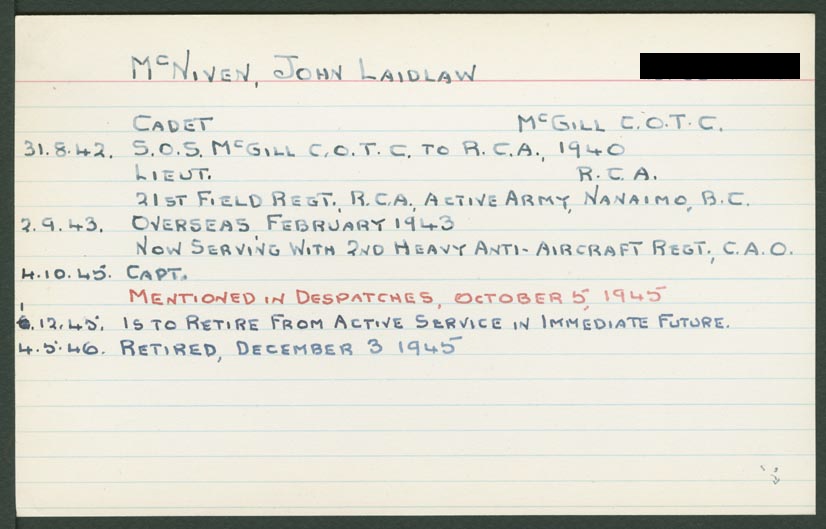 McNiven, John Laidlaw
Cadet McGill C.O.T.C.
31.8.42. S.O.S. McGill C.O.T.C. to R.C.A., 1940
Lieut. R.C.A.
21st Field Regt., R.C.A., Active Army, Nanaimo, B.C.
2.9.43. Overseas February 1943
Now Serving With 2nd Heavy Anti-Aircraft Regt., C.A.O.
4.10.45. Capt.
Mentioned in Despatches, October 5, 1945
.12.45. Is to Retire From Active Service in Immediate Future.
4.5.46. Retired, December 3 1945